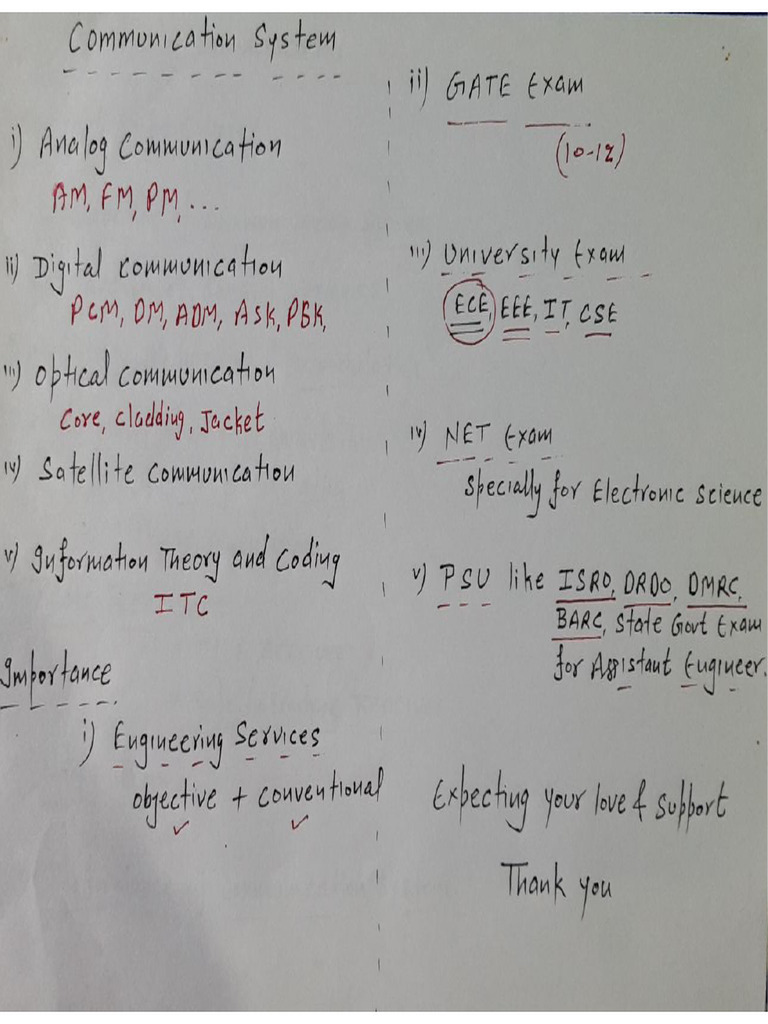 Communication System
i) Analog Communication
AM, FM, PM, ...
ii) Digital Communication
PCM, DM, ADM, ASK, PSK,
iii) Optical Communication
Core, Cladding, Jacket
iv) Satellite Communication
v) Information Theory and Coding
ITC
Importance
i) Engineering Services
Objective + Conventional
ii) GATE Exam
(10-12)
iii) University Exam
ECE, EEE, IT, CSE
iv) NET Exam
Specially for Electronic Science
v) PSU like ISRO, DRDO, DMRC,
BARC, State Govt Exam
for Assistant Engineer.
Expecting your love & support
Thank you